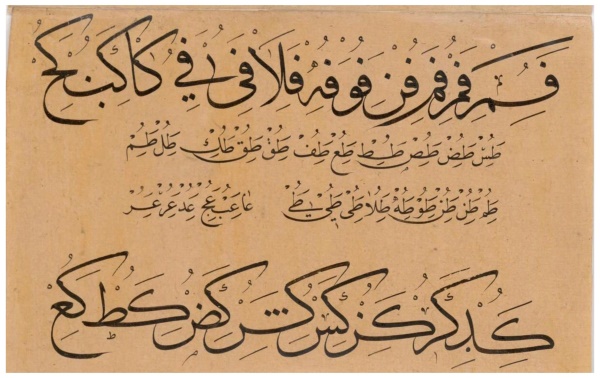 فم فم فم فن فو فه فلا فى في كا كب كح
طس طض طص طط طع طف طق طق طك طل طم
طم طن طن طو طه طلا طى طي عا عب عج عد عر عر
كد كر كز كس كش كض كط كع